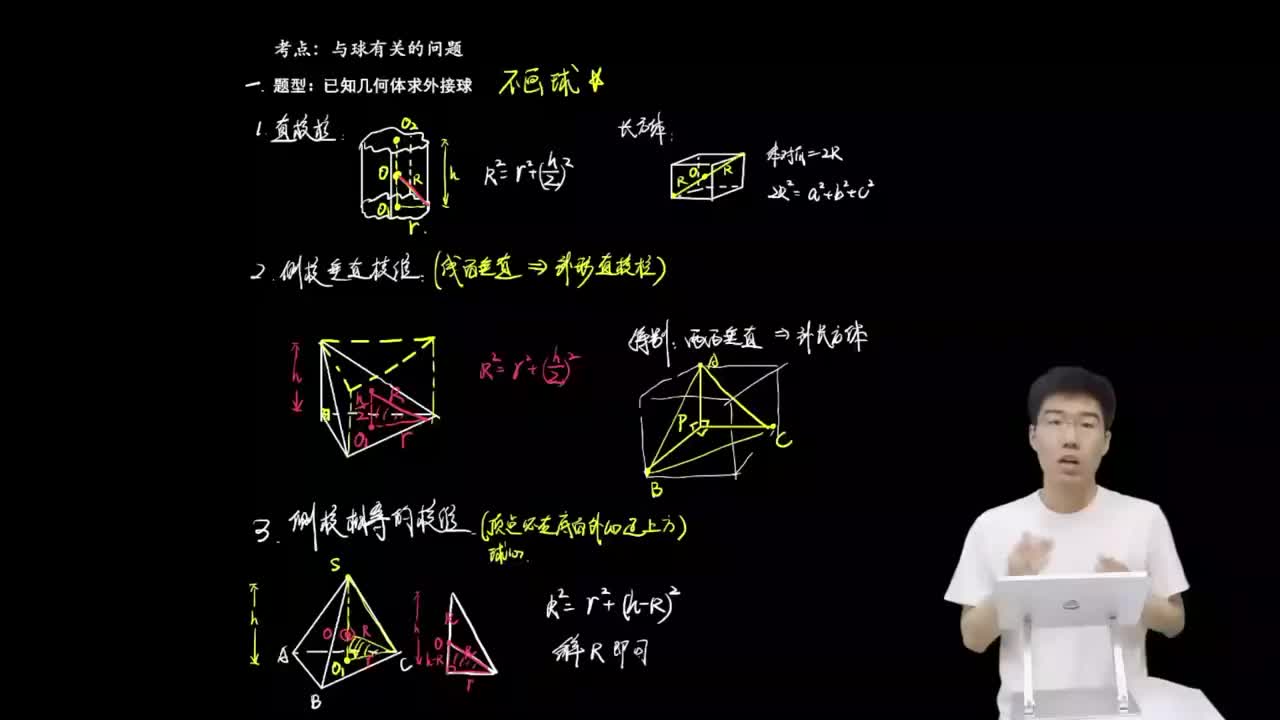 考点：与球有关的问题
一. 题型：已知几何体求外接球 不画球
1. 直棱柱：
长方体：
O₂
O
R
h
O₁
r
R²=r²+(h/2)²
O
R
R
体对角=2R
2R²=a²+b²+c²
2. 侧棱垂直棱锥：(线面垂直⇒补形直棱柱)
特别：两两垂直⇒补长方体
h
h/2
R
O₁
r
R²=r²+(h/2)²
A
P
C
B
3. 侧棱相等的棱锥 (顶点必在底面外心正上方)
球心
S
h
O
R
A
O₁
r
C
B
h
R
O
h-R
R
r
R²=r²+(h-R)²
解R即可